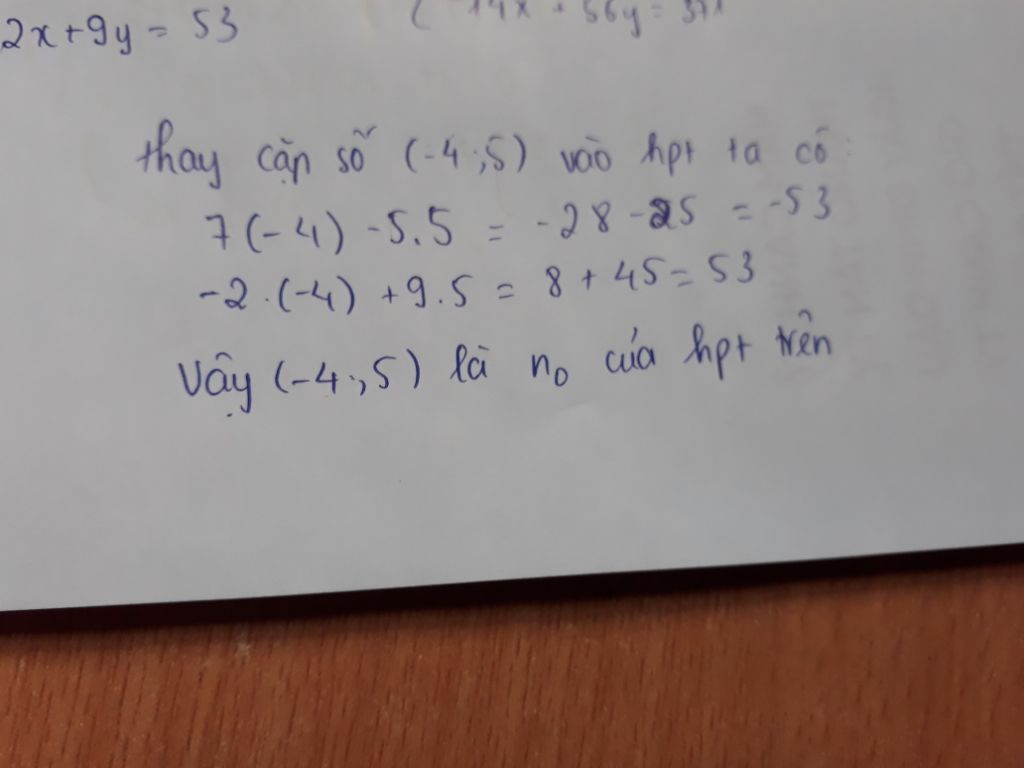 2x+9y = 53
-14x + 56y = 371
thay cặp số (-4;5) vào hpt ta có:
7(-4) -5.5 = -28 -25 = -53
-2.(-4) +9.5 = 8 + 45 = 53
Vậy (-4;5) là n₀ của hpt trên